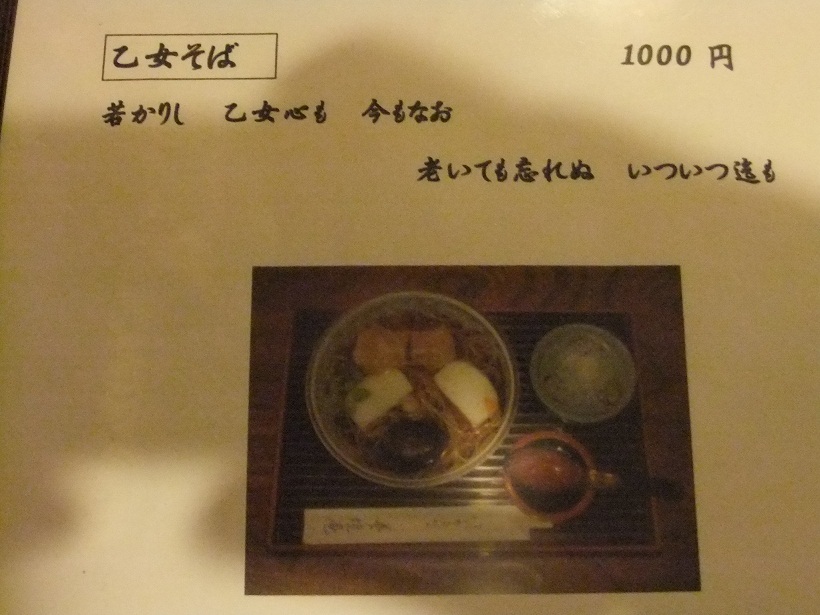 乙女そば 1000 円
若かりし 乙女心も 今もなお
老いても忘れぬ いついつ迄も